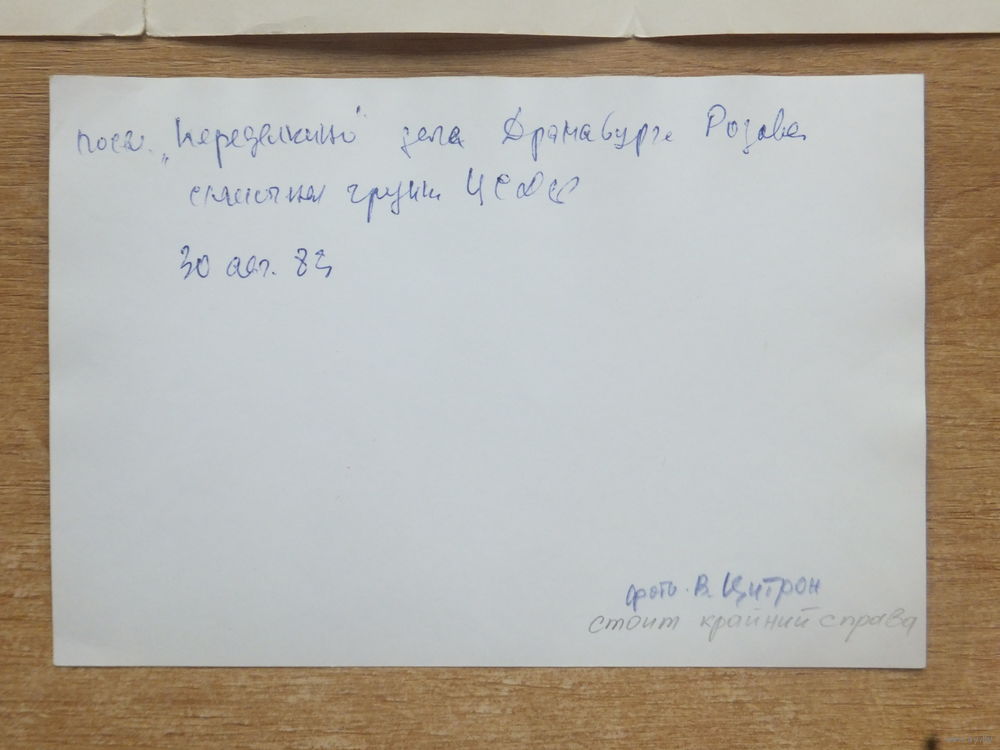 пос. „Переделкино" дача Драматурга Розова
съемочная группа ЦСДФ
30 авг. 83
фото. В. Цитрон
стоит крайний справа